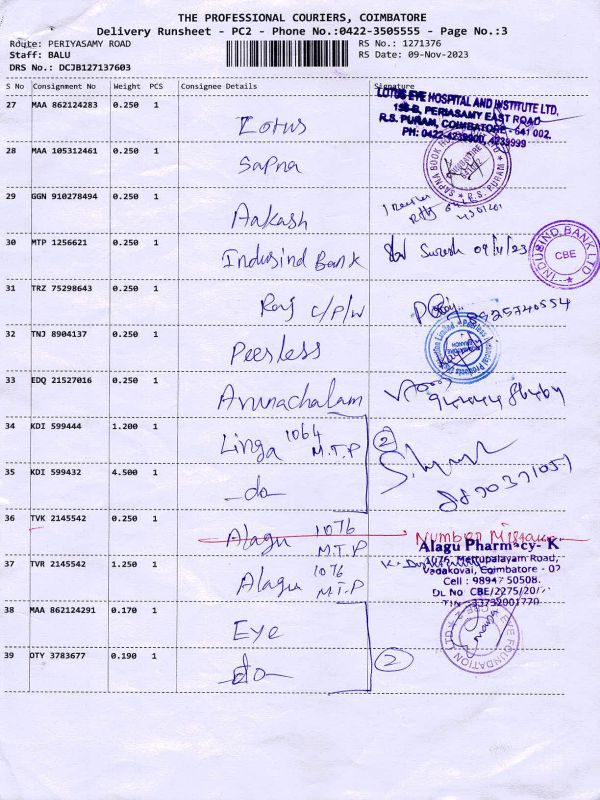 THE PROFESSIONAL COURIERS, COIMBATORE
Delivery Runsheet - PC2 - Phone No.:0422-3505555 - Page No.:3
Route: PERIYASAMY ROAD
Staff: BALU
DRS No.: DCJB127137603
RS No.: 1271376
RS Date: 09-Nov-2023
S No Consignment No Weight PCS Consignee Details Signature
27 MAA 862124283 0.250 1 Lotus
LOTUS EYE HOSPITAL AND INSTITUTE LTD.
155-B, PERIASAMY EAST ROAD
R.S. PURAM, COIMBATORE - 641 002.
PH: 0422-4239900, 4239999
28 MAA 105312461 0.250 1 Sapna
SAPNA BOOK R.S. PURAM
29 GGN 910278494 0.250 1 Aakash
30 MTP 1256621 0.250 1 Indusind Bank Suresh 09/11/23
INDUSIND BANK LTD CBE
31 TRZ 75298643 0.250 1 Raj C/P/W
8925740554
32 TNJ 8904137 0.250 1 Peerless
33 EDQ 21527016 0.250 1 Arunachalam
34 KDI 599444 1.200 1 Linga 1064 M.T.P 2
35 KDI 599432 4.500 1 -do-
36 TVK 2145542 0.250 1 Alagu 1076 M.T.P Number
37 TVR 2145542 1.250 1 Alagu 1076 M.T.P
Alagu Pharmacy- K
1076, Mettupalayam Road,
Vadakovai, Coimbatore - 02
Cell : 98947 50508.
DL No CBE/2275/20/
TIN 33732001770
38 MAA 862124291 0.170 1 Eye
EYE FOUNDATION
39 OTY 3783677 0.190 1 -do- 2